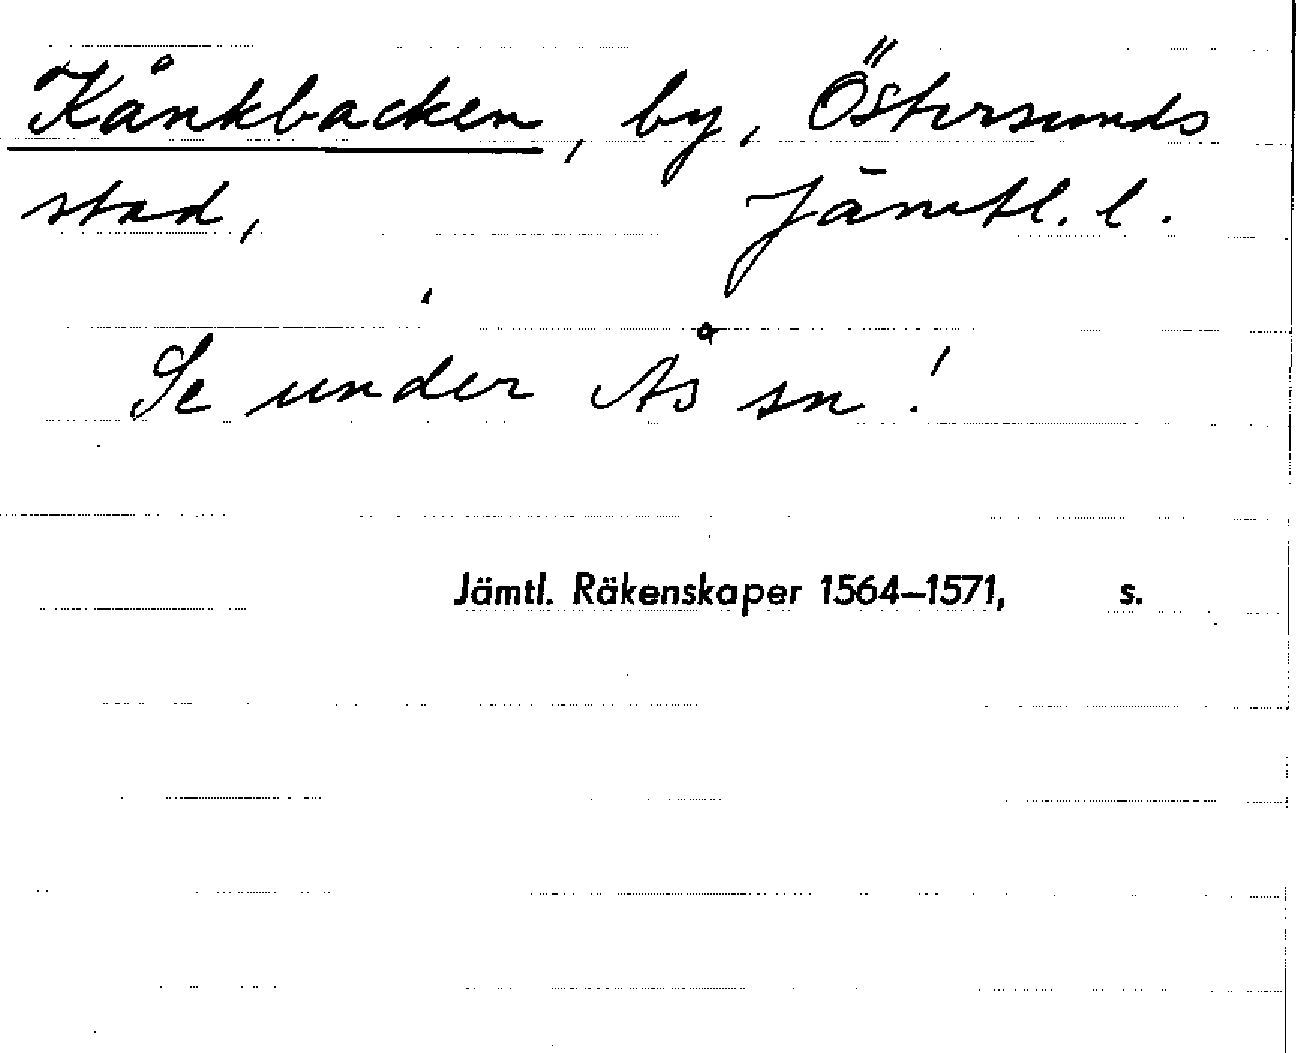 Kånkbacken, by, Östersunds
stad, Jämtl. l.
Se under Ås sn!
Jämtl. Räkenskaper 1564–1571, s.